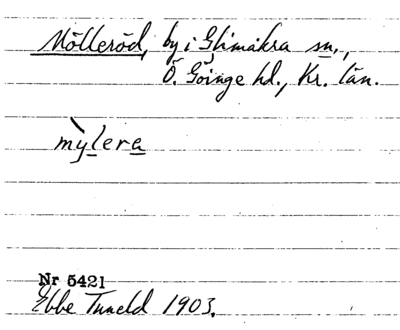 Mölleröd, by i Glimåkra sn.,
Ö. Göinge hd., Kr. län.
mỳlera
Nr 5421
Ebbe Tuneld 1903.